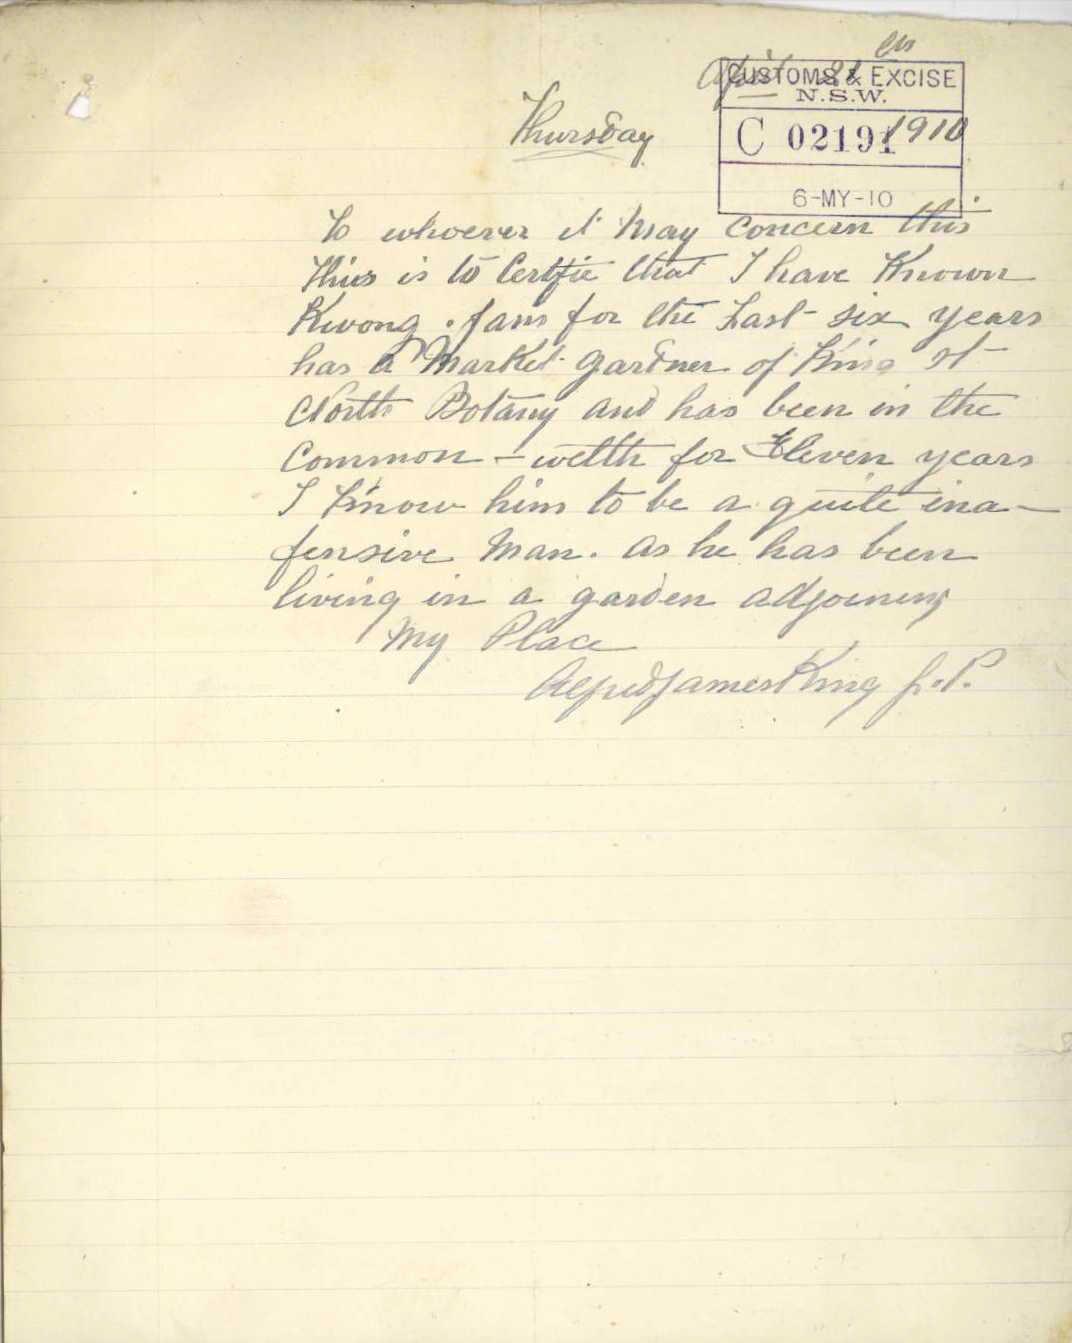 April 28 1910
CUSTOMS & EXCISE
N.S.W.
C 02191
6-MY-10
Thursday
To whoever it May Concern this
This is to Certfie that I have Known
Kwong . fam for the Last six years
has a Market gardner of King st
North Botany and has been in the
Common - welth for Eleven years
I Know him to be a quite ina-
fensive Man. as he has been
living in a garden adjoening
My Place
Alfred James King J.P.